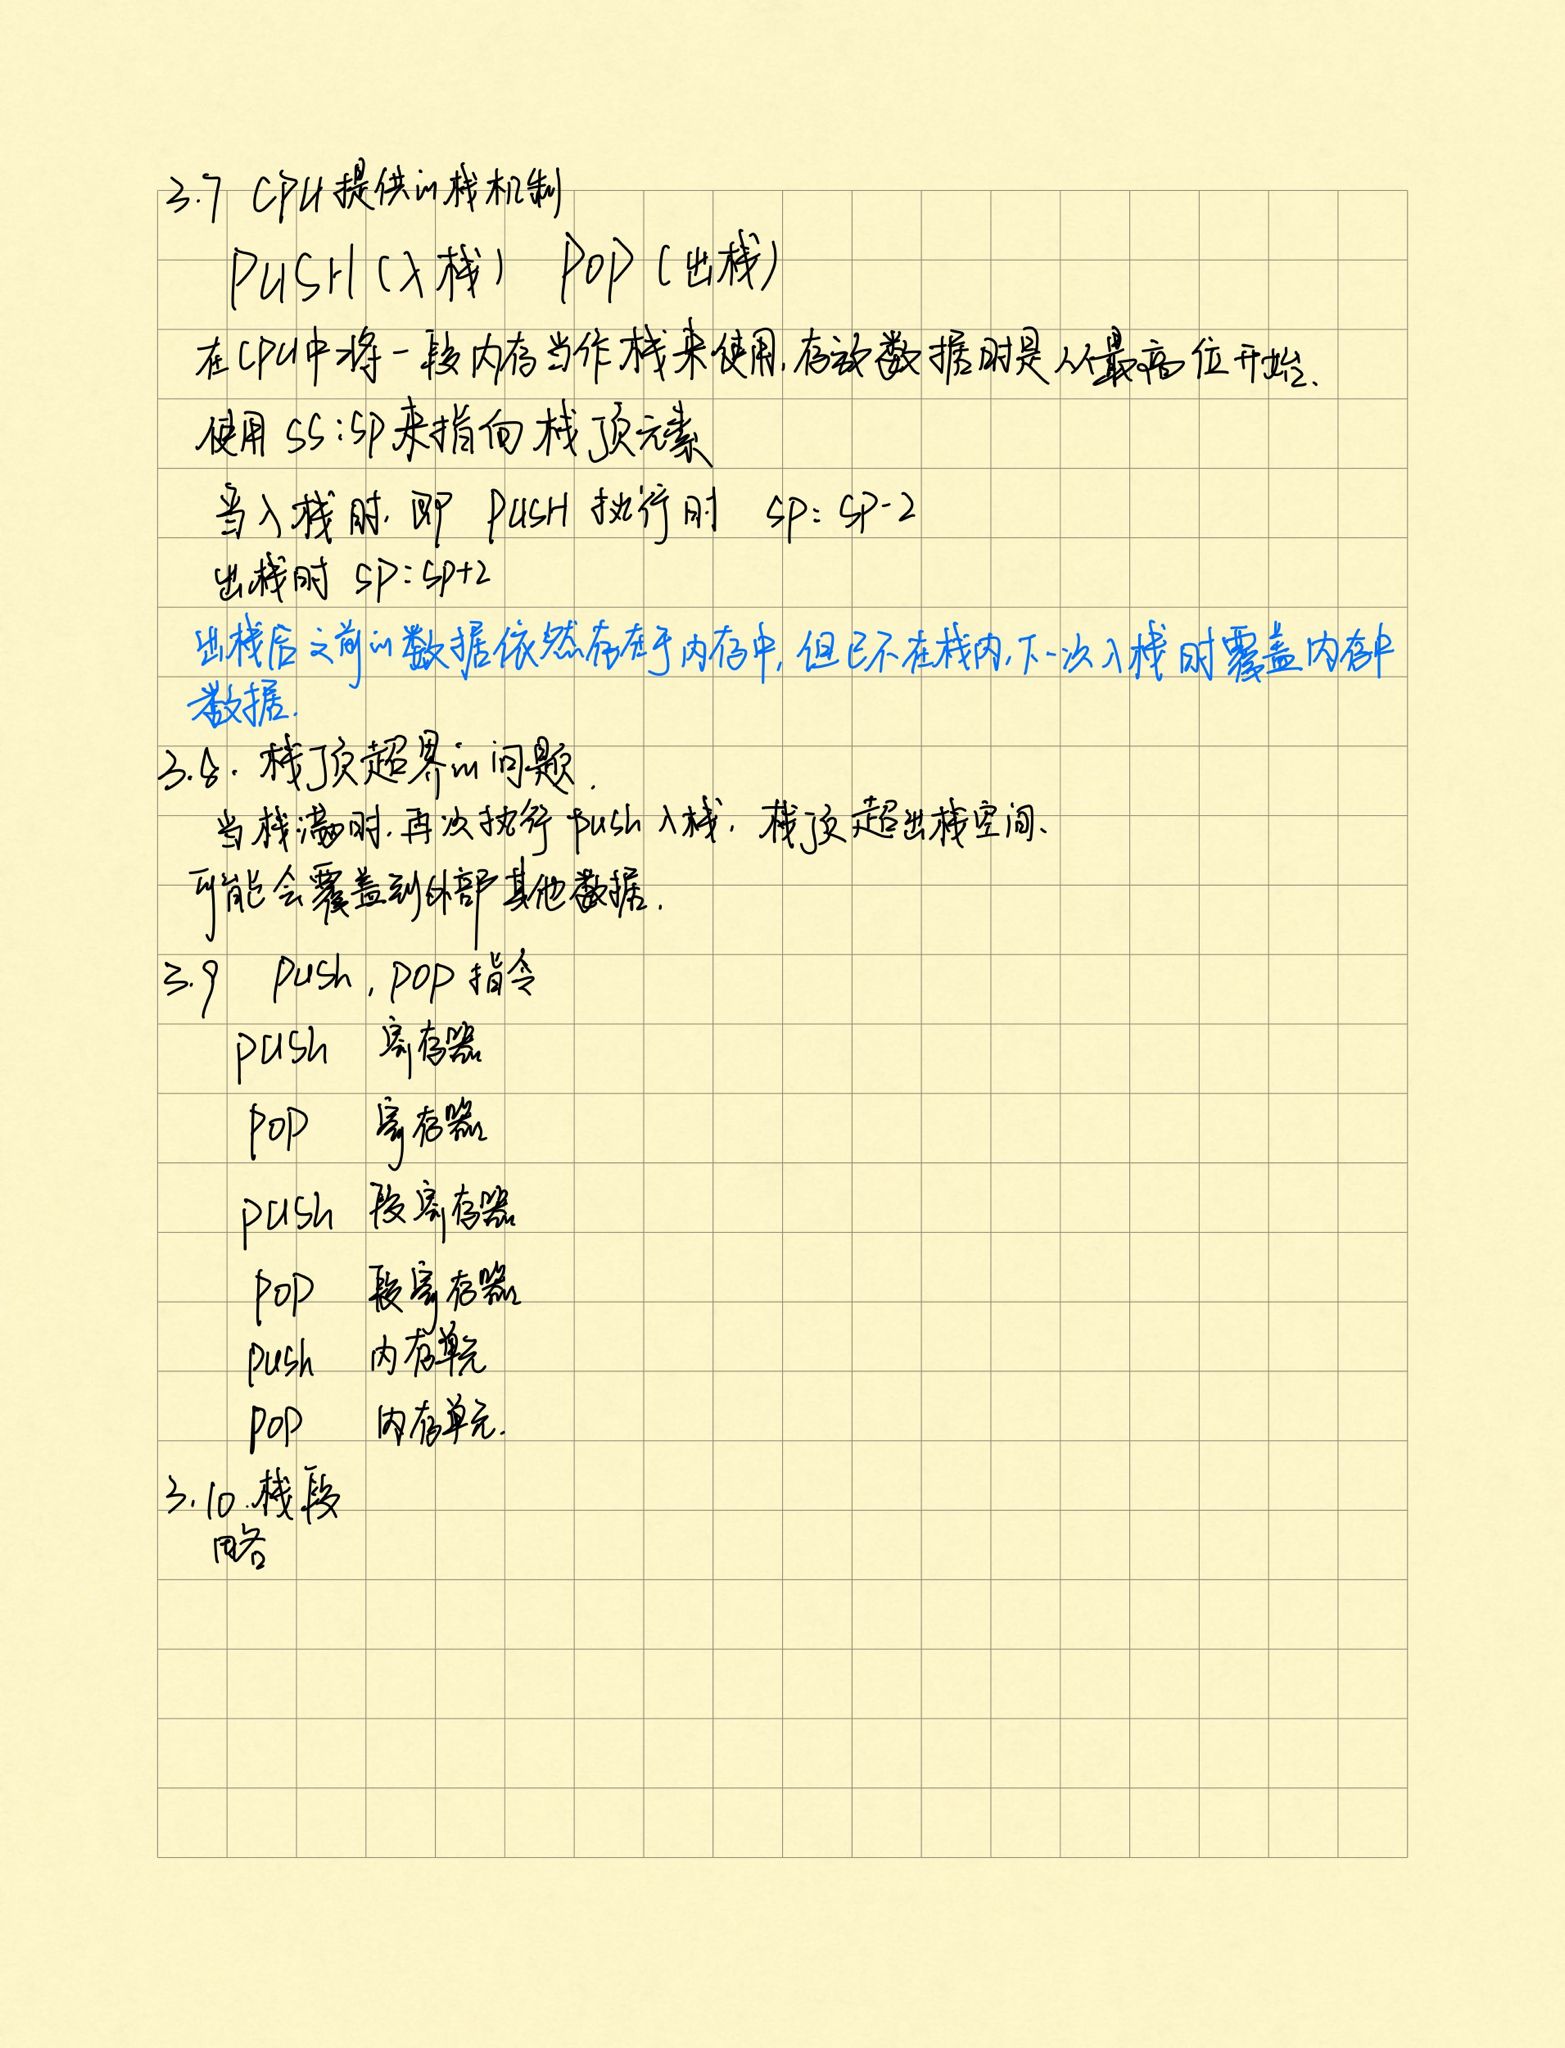 3.7 CPU提供的栈机制
PUSH(入栈) POP(出栈)
在CPU中将一段内存当作栈来使用,存放数据时是从最高位开始.
使用SS:SP来指向栈顶元素
当入栈时,即 PUSH执行时 SP=SP-2
出栈时 SP=SP+2
出栈后之前的数据依然存在于内存中,但已不在栈内,下一次入栈时覆盖内存中
数据.
3.8.栈顶超界的问题.
当栈满时,再次执行push入栈,栈顶超出栈空间、
可能会覆盖到外部其他数据.
3.9 push,pop指令
push 寄存器
pop 寄存器
push 段寄存器
pop 段寄存器
push 内存单元
pop 内存单元.
3.10.栈段
略